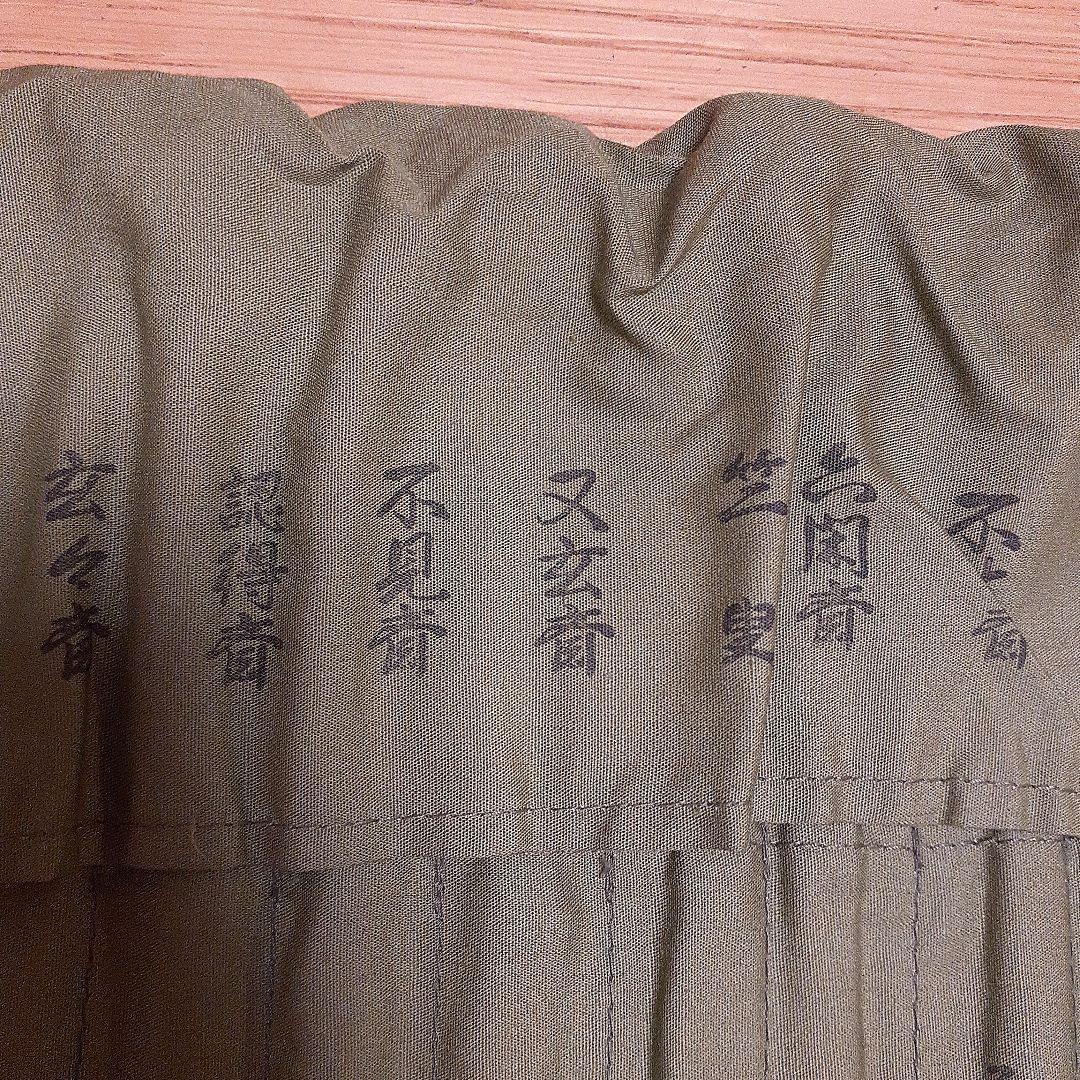 不斎
六閑斎
竺叟
又玄斎
不見斎
認得斎
玄々斎